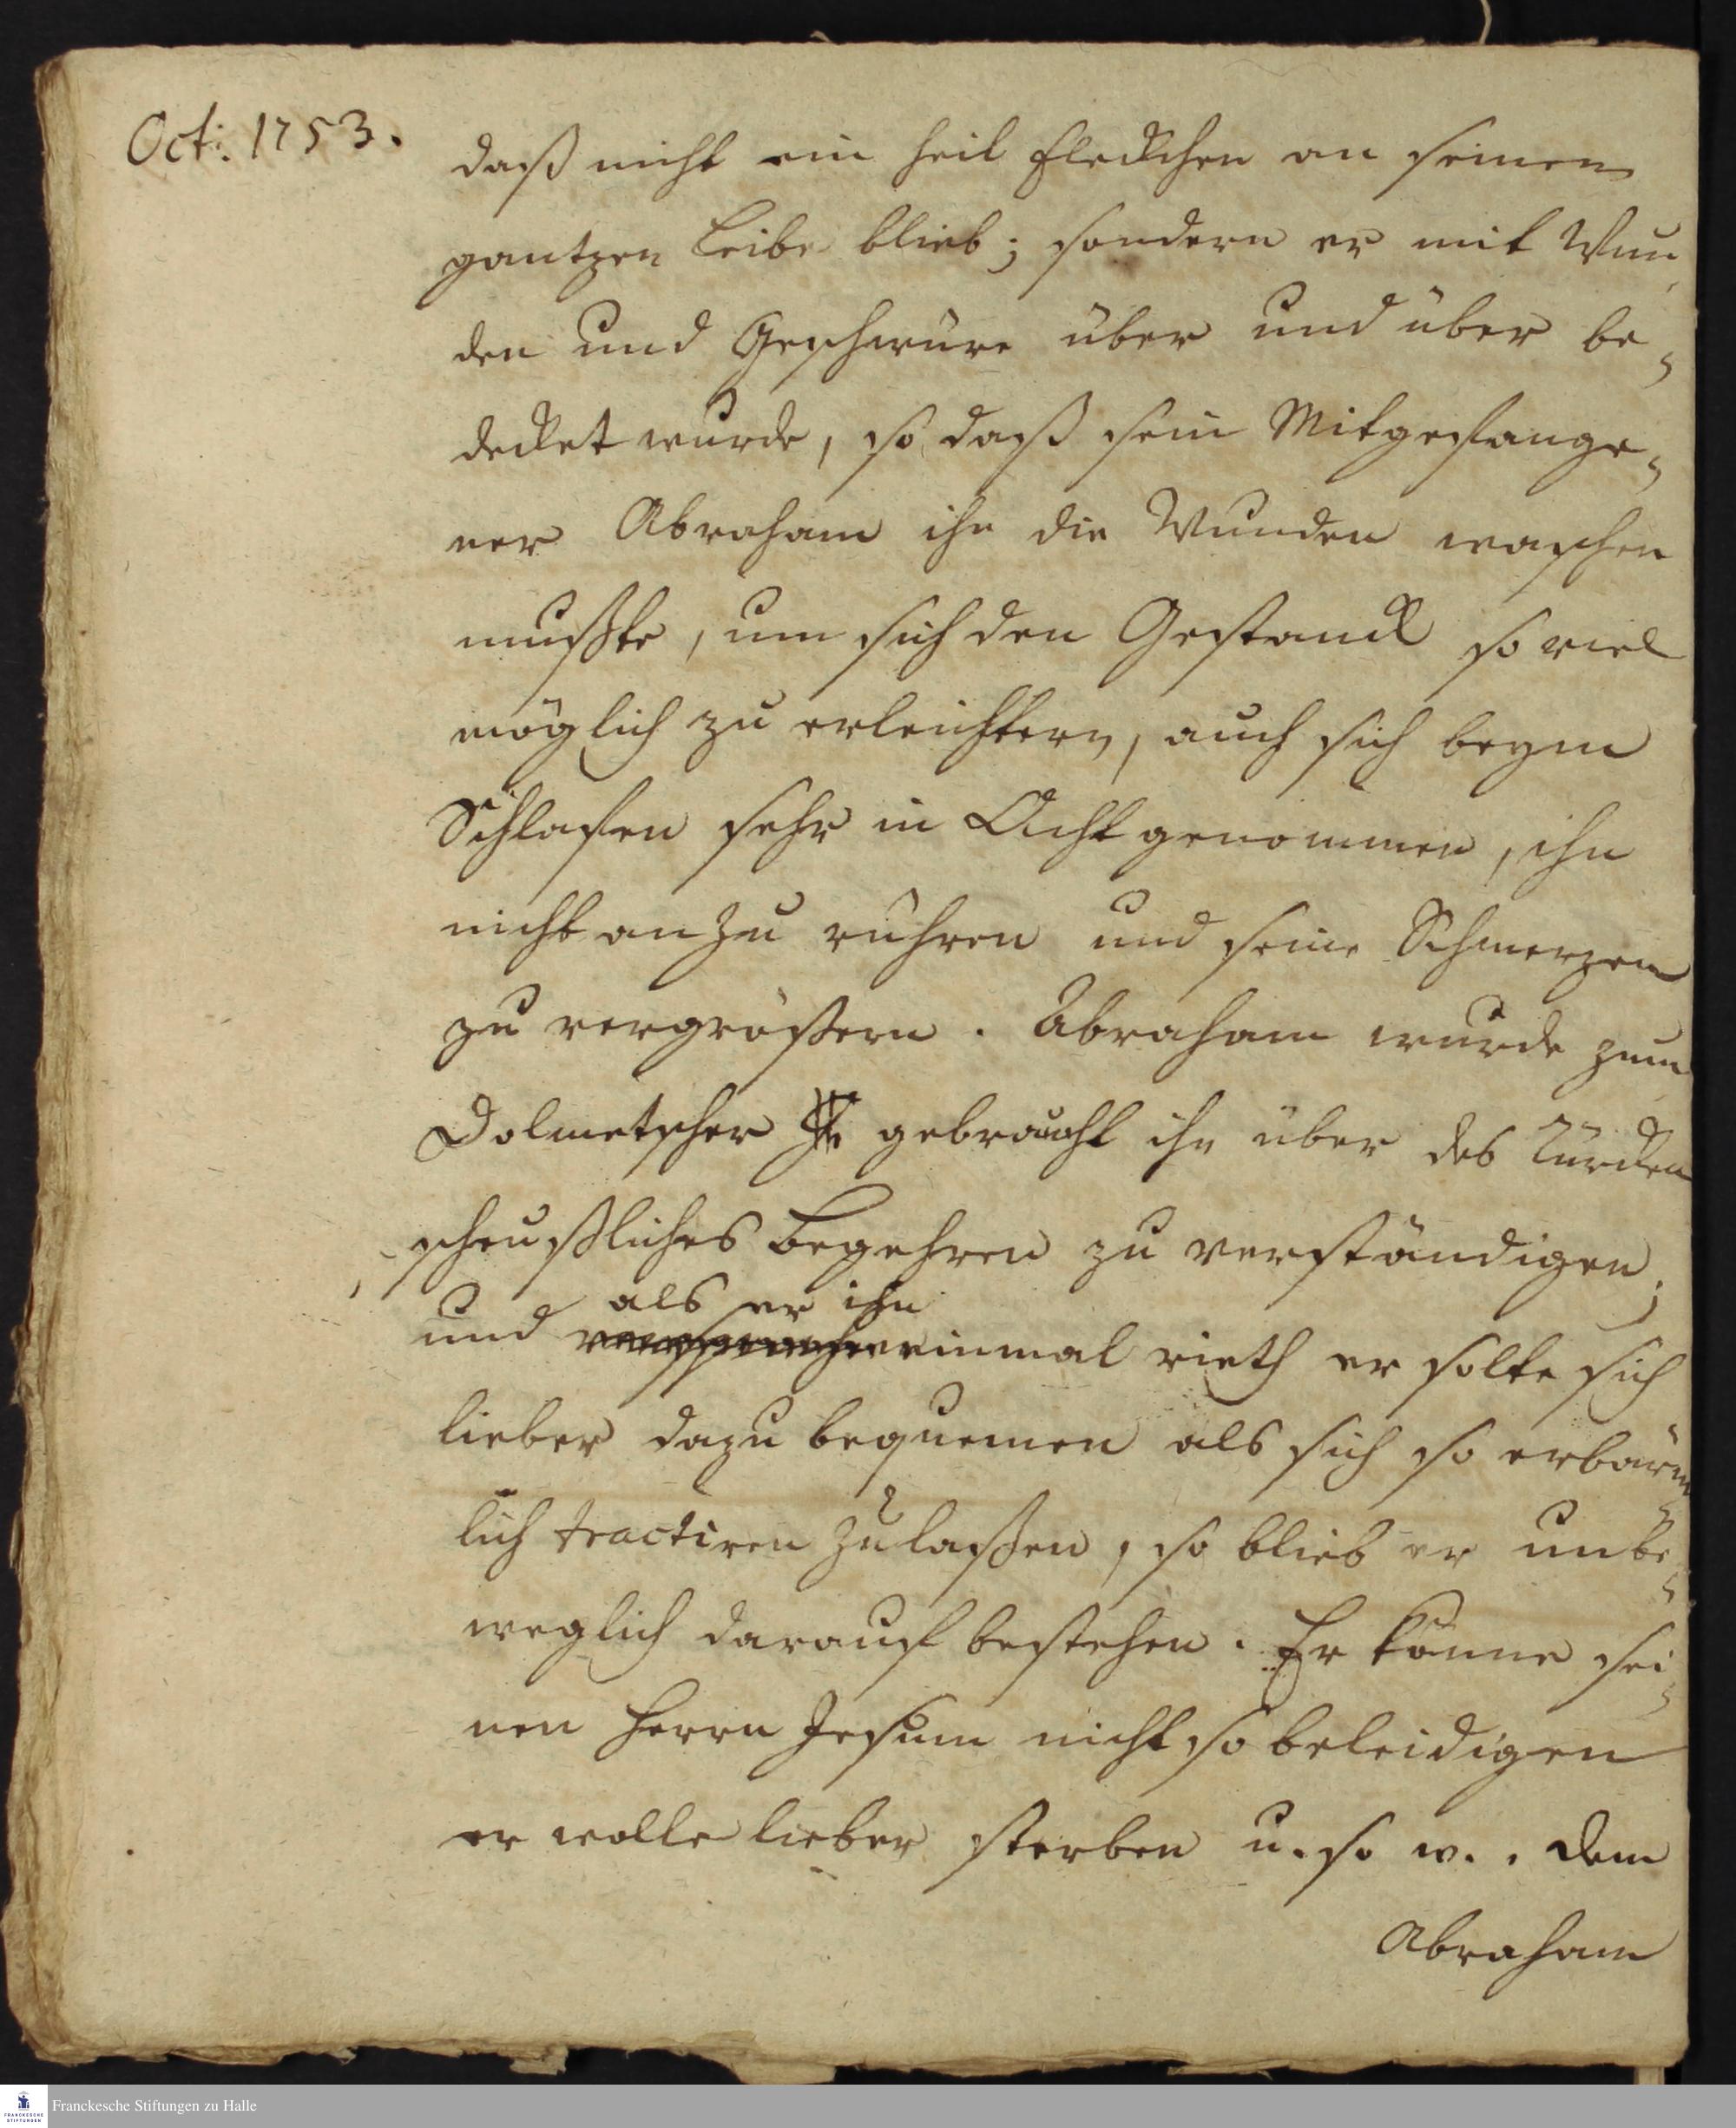 Oct: 1753.
daß nicht ein heil Fleckchen an seinem
gantzen Leibe blieb; sondern er mit Wun-
den und Geschwüre über und über be-
decket wurde, so daß sein Mitgefange-
ner Abraham ihn die Wunden waschen
mußte, um sich den Gestanck so viel
möglich zu erleichtern, auch sich beym
Schlafen sehr in Acht genommen, ihn
nicht anzu rühren und seine Schmerzen
zu vergrößern. Abraham wurde zum
Dolmetscher gebraucht ihn über des Türcken
scheußliches Begehren zu verständigen;
als er ihn
und einmal rieth er solte sich
lieber dazu bequemen als sich so erbärm-
lich tractiren zu laßen, so blieb er unbe-
weglich darauf bestehen. Er könne sei-
nen Herrn Jesum nicht so beleidigen
er wolle lieber sterben u. so w.. Dem
Abraham
Franckesche Stiftungen zu Halle
FRANCKESCHE
STIFTUNGEN